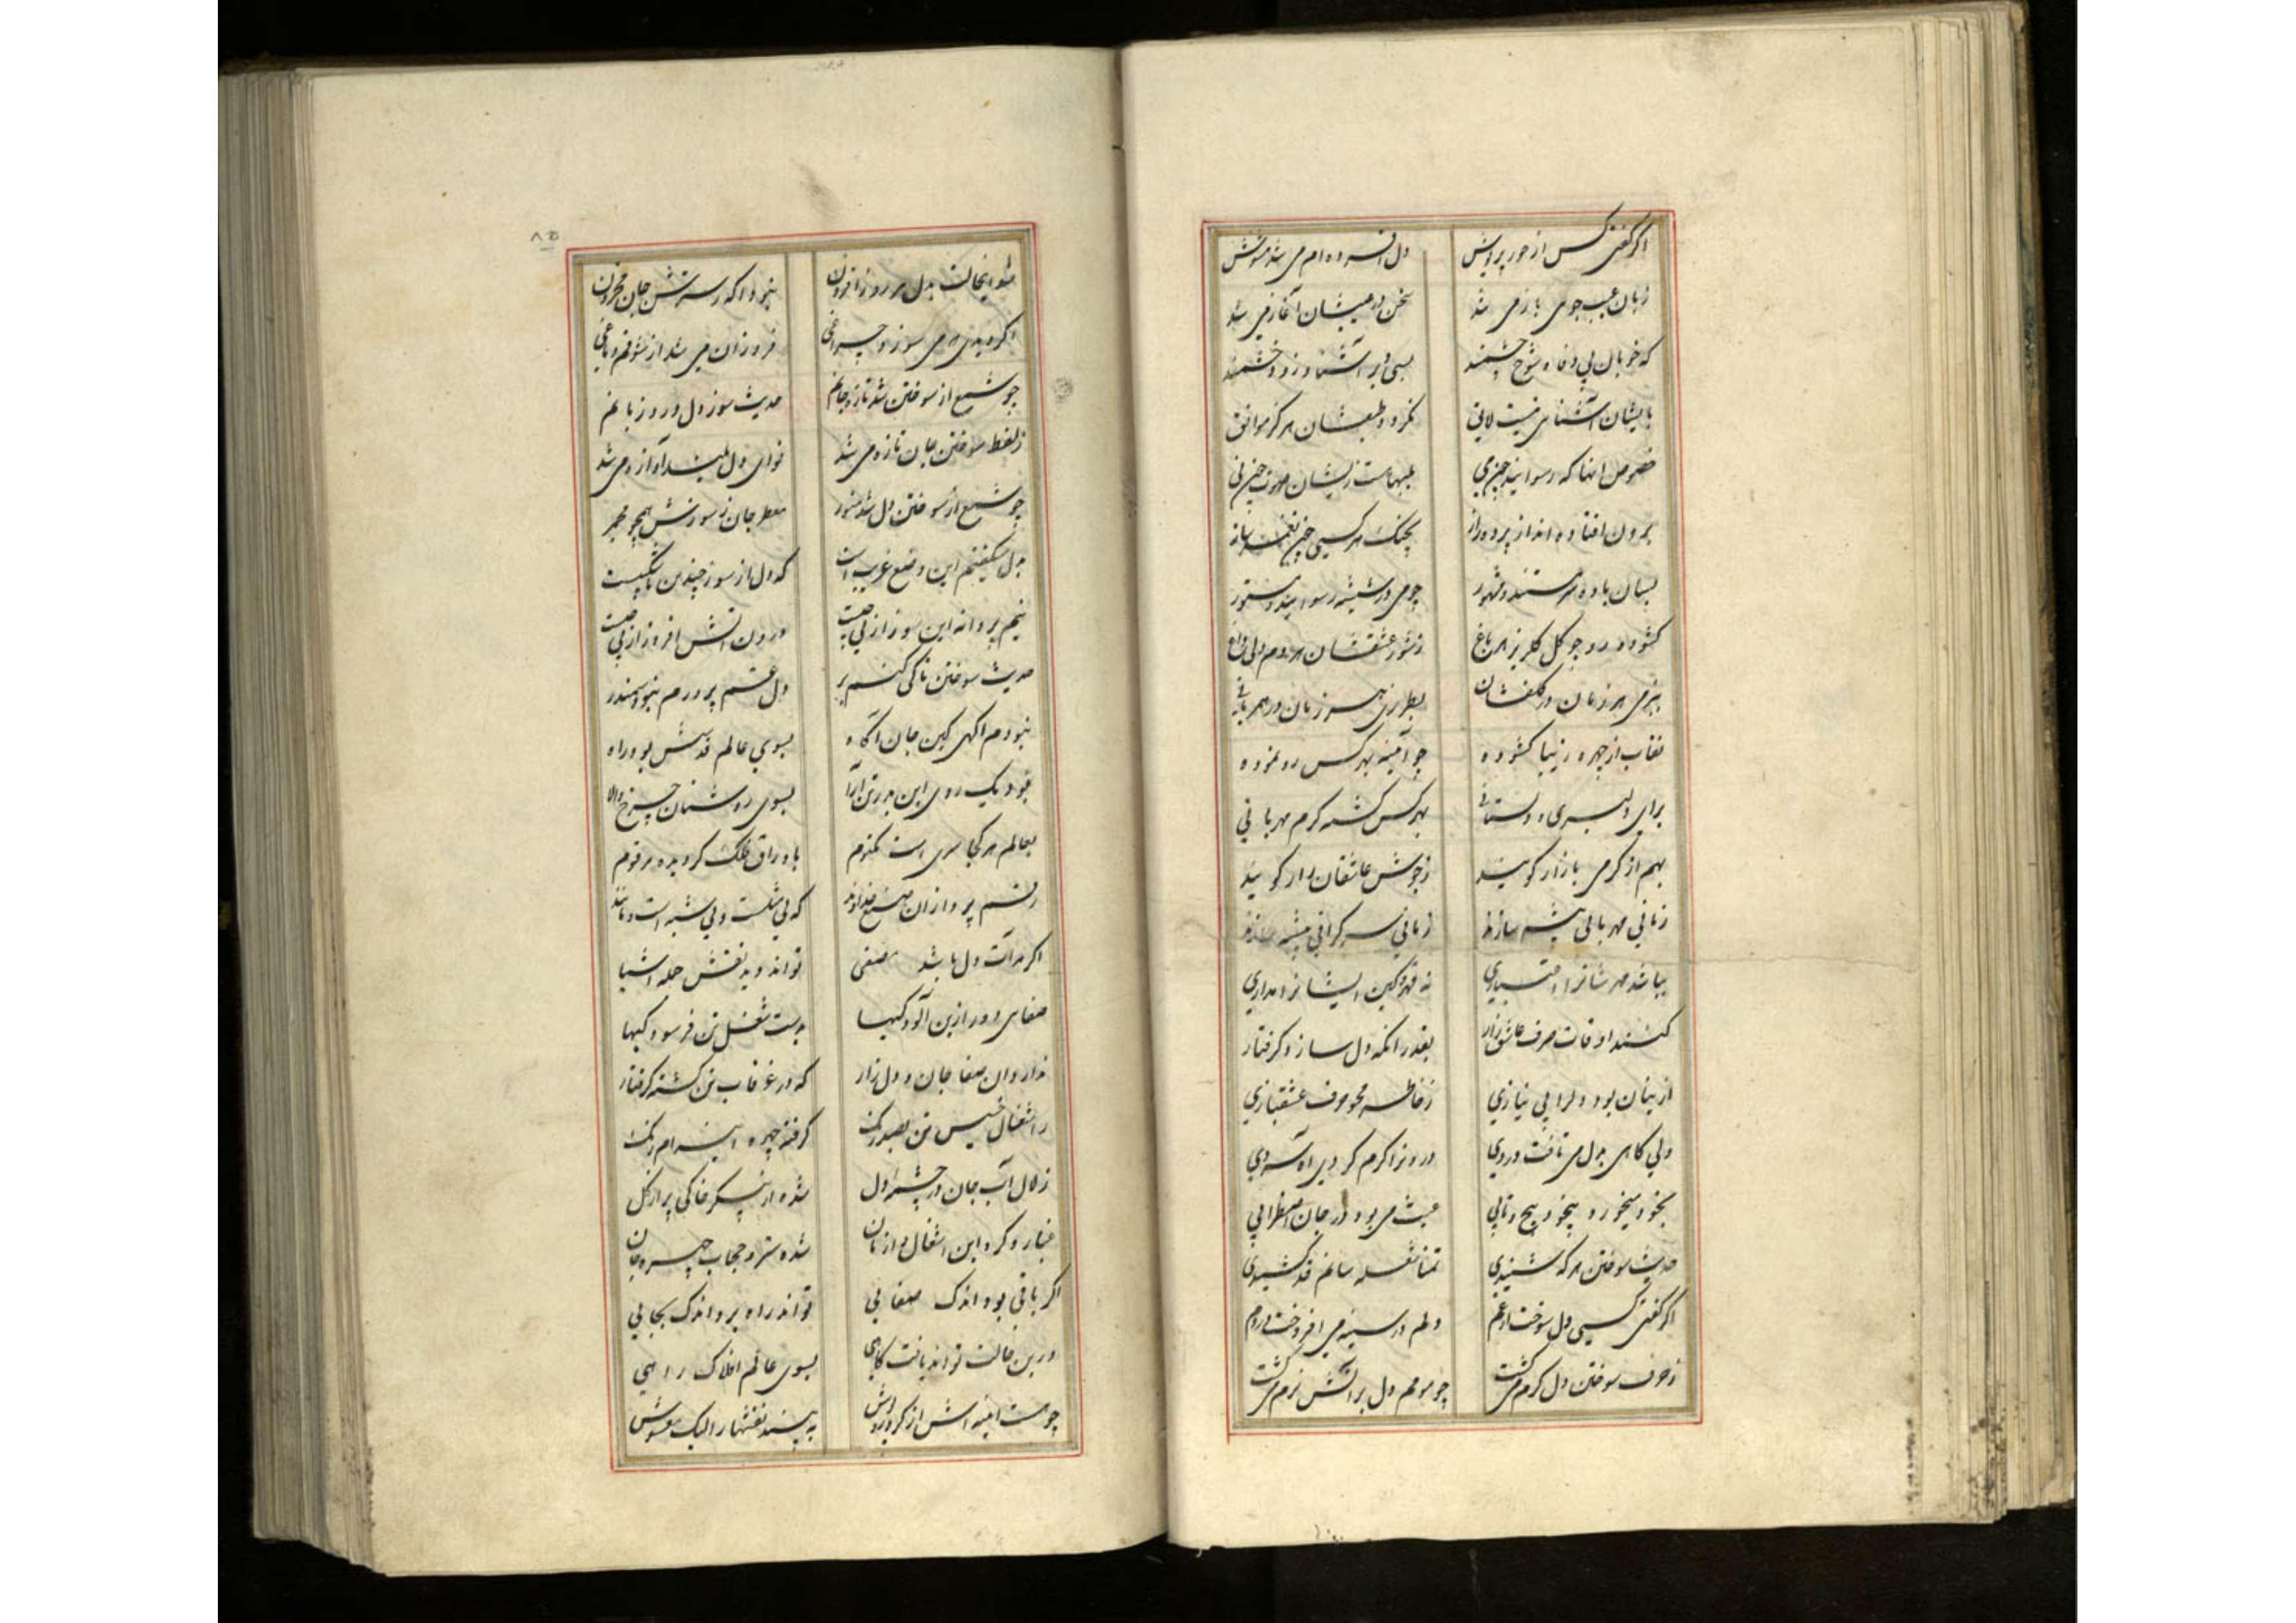 اگر گفتی کس از حور پریوش
دل افسرده ام می شد مشوش
زبان عیب جوی باز می شد
سخن در عیبشان آغاز می شد
که خوبان بی وفا و شوخ چشمند
بسی دیر آشنا و زود خشمند
بایشان آشنای نیست لایق
نگردد طبعشان هرگز موافق
خصوص انها که رسوایند چون می
برون افتاده اند از پرده راز
بچنگ هر کسی چون نغمه ساز
بسان باده سرمستند و مشهور
چو می در شیشه رسوایند و مستور
گشوده رو چو گل گلریز هر باغ
ز شور عشقشان هر دم دلی داغ
ببزمی هر زمان در گلفشان
بطرزی هر زمان در مهربانی
نقاب از چهره زیبا گشوده
چو آئینه بهر کس رو نموده
برای دلبری و دلستانی
بهر کس گشته گرم مهربانی
بهم از گرمی بازار گویند
ز جوش عاشقان زار گویند
زمانی مهربانی پیشه سازند
زمانی سرگرانی پیشه سازند
نباشد مهرشانرا اعتباری
نه قهر و کین ایشانرا مداری
کنند اوقات صرف عاشق زار
بقدر انکه دل سازد گرفتار
ازینسان بود دلرا بی نیازی
ز خاطر محو حرف عشقبازی
ولی گاهی بدل می تافت دردی
درونرا گرم کردی اه سردی
بخود میخورد بیخود پیچ و تابی
عبث می بود در جان اضطرابی
حدیث سوختن هر که شنیدی
تمنا شعله سانم قد کشیدی
اگر گفتی کسی دل سوخت از غم
دلم در سینه می افروخت در دم
ز حرف سوختن دل گرم می گشت
چو مومم دل بر آتش نرم می گشت
شد اینحالت بدل هر روز افزون
نبود اگه ز سرش جان محزون
اگر دیدی همی سوزد چراغی
فروزان می شد از شوقم دماغی
چو شمع از سوختن شد تازه جانم
حدیث سوز دل ورد زبانم
ز لفظ سوختن جان تازه می شد
نوای دل بلند آوازه می شد
چو شمع از سوختن دل شد منور
معطر جان ز سوزش همچو مجمر
بدل میگفتم این وضع غریب است
که دل از سوز چندین ناشکیبست
نیم پروانه این سوز از پی چیست
درون آتش افروز از پی چیست
حدیث سوختن تا کی کنم بر
دل غم پرورم نبود سمندر
نبودم اگهی کین جان آگاه
بسوی عالم قدسش بود راه
بسوی روشنان چرخ والا
بعالم هر کجا سری است مکتوم
باوراق فلک گردیده مرقوم
رقم پرداز ان صنع خداوند
که بی شکست و بی شبه است و مانند
اگر مرآت دل باشد مصفی
تواند دید نقش جمله اشیا
صفای دور ازین آلودگیها
بدست شغل تن فرسودگیها
ندارد ان صفا جان و دل زار
که در غرقاب تن گشته گرفتار
ز اشغال خسیس تن بصد رنگ
گرفته چهره اینه ام زنگ
زلال آب جان در چشمه دل
شده از پیکر خاکی پر از گل
غبار و گرد این اشغال و ازمان
شده ستر و حجاب چهره جان
اگر باقی بود اندک صفایی
تواند راه برد اندک بجایی
درین حالت تواند یافت گاهی
بسوی عالم افلاک راهی
به بیند نقشها را لیک مغشوش